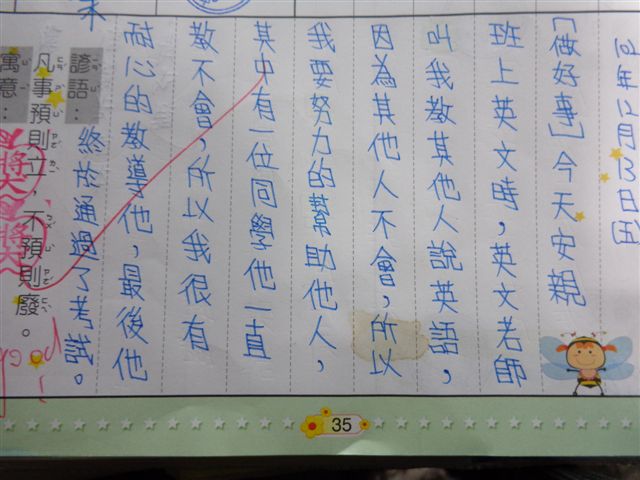 年12月13日五
「做好事」今天安親
班上英文時，英文老師
叫我教其他人說英語，
因為其他人不會，所以
我要努力的幫助他人，
其中有一位同學他一直
教不會，所以我很有
耐心的教導他，最後他
終於通過了考試。
諺語：
凡事預則立，不預則廢。
寓意：
35